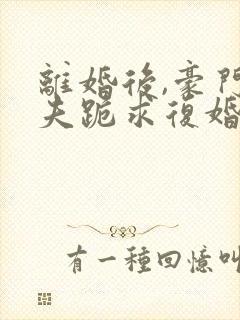 離婚後,豪門
夫跪求復婚
有一種回憶叫